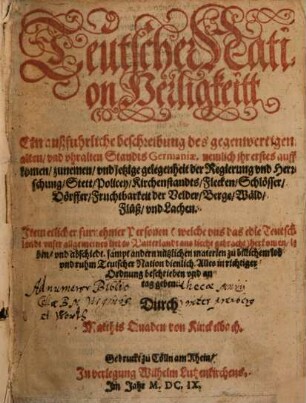 Teutscher Nati-
on Herligkeitt
Ein außfuhrliche beschreibung des gegenwertigen
alten/ vnd vhralten Standts Germaniæ, nemlich ihr erstes auff
komen/ zunemen/ vnd jetzige gelegenheit der Regierung vnd Herꝛ-
schung/ Stett/ Policey/ Kirchenstandts/ Flecken/ Schlösser/
Dörffer/ Fruchtbarkeit der Velder/ Berge/ Wäld/
Flüß/ vnd Lachen.
Item etlicher furnehmer Personen welche vns das edle Teutsch
landt vnser allgemeines Vatterlandt ans liecht gebracht/ herkomen/ le
ben/ vnd abscheidt. sampt andern nützlichen materien zu
vnd ruhm Teutscher Nation dienlich. Alles in richtiger
Ordnung beschrieben vnd an
tag geben:
Durch
Matthis Quaden von Kinckelbach.
Gedruckt zu Cölln am Rhein/
In verlegung Wilhelm Lutzenkirchens.
Im Jahr M. DC. IX.